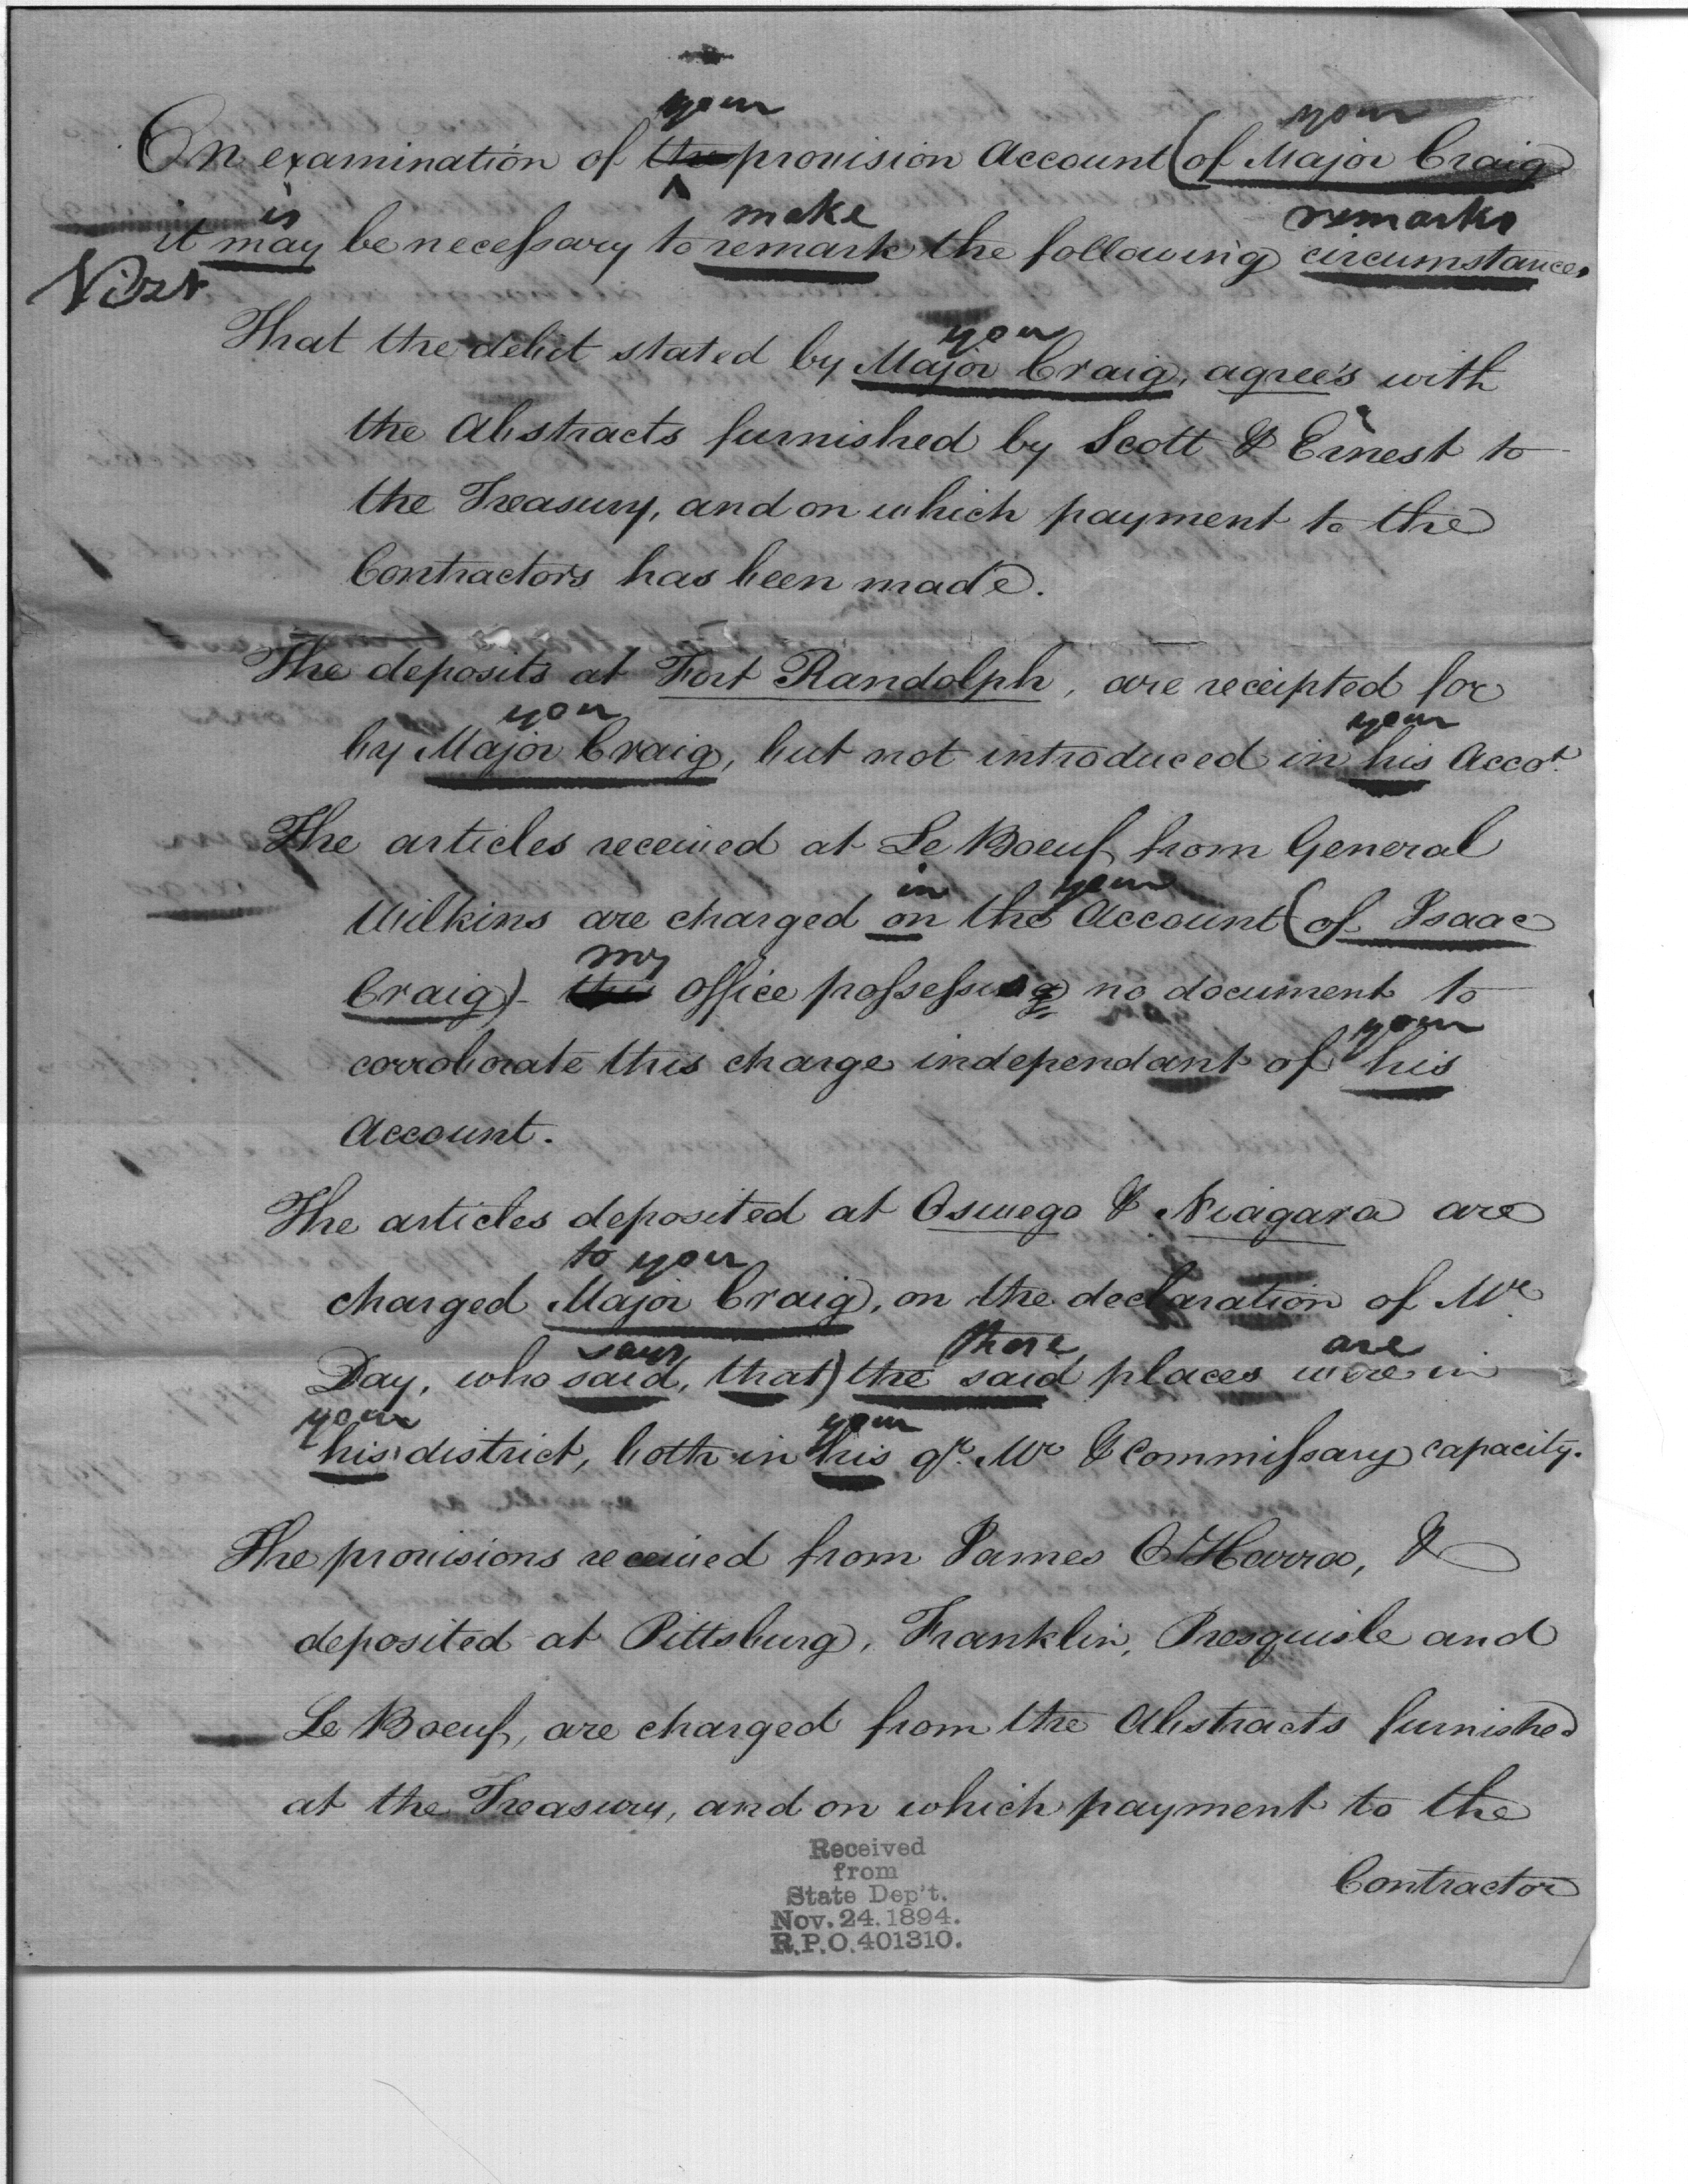 your your
On examination of the provision Account (of Major Craig
is make remarks
it may be necessary to remark the following circumstances
Vizt
you
That the debit stated by Major Craig, agrees with
the Abstracts furnished by Scott & Ernest to
the Treasury, and on which payment to the
Contractors has been made.
The deposits at Fort Randolph, are receipted for
you your
by Major Craig, but not introduced in his Accot.
The articles received at Le Boeuf from General
in your
Wilkins are charged on the Account (of Isaac
my
Craig) - this office possessing no document to
your
corroborate this charge independant of his
Account.
The articles deposited at Oswego & Niagara are
to you
charged Major Craig, on the declaration of Mr.
says these are
Day, who said, that) the said places were in
your your
his district, both in his qr. Mr & Commissary capacity.
The provisions received from James O'Harra, &
deposited at Pittsburg, Franklin, Presquisle and
Le Boeuf, are charged from the Abstracts furnished
at the Treasury, and on which payment to the
Contractor
Received
from
State Dep't.
Nov. 24. 1894.
R.P.O. 401310.